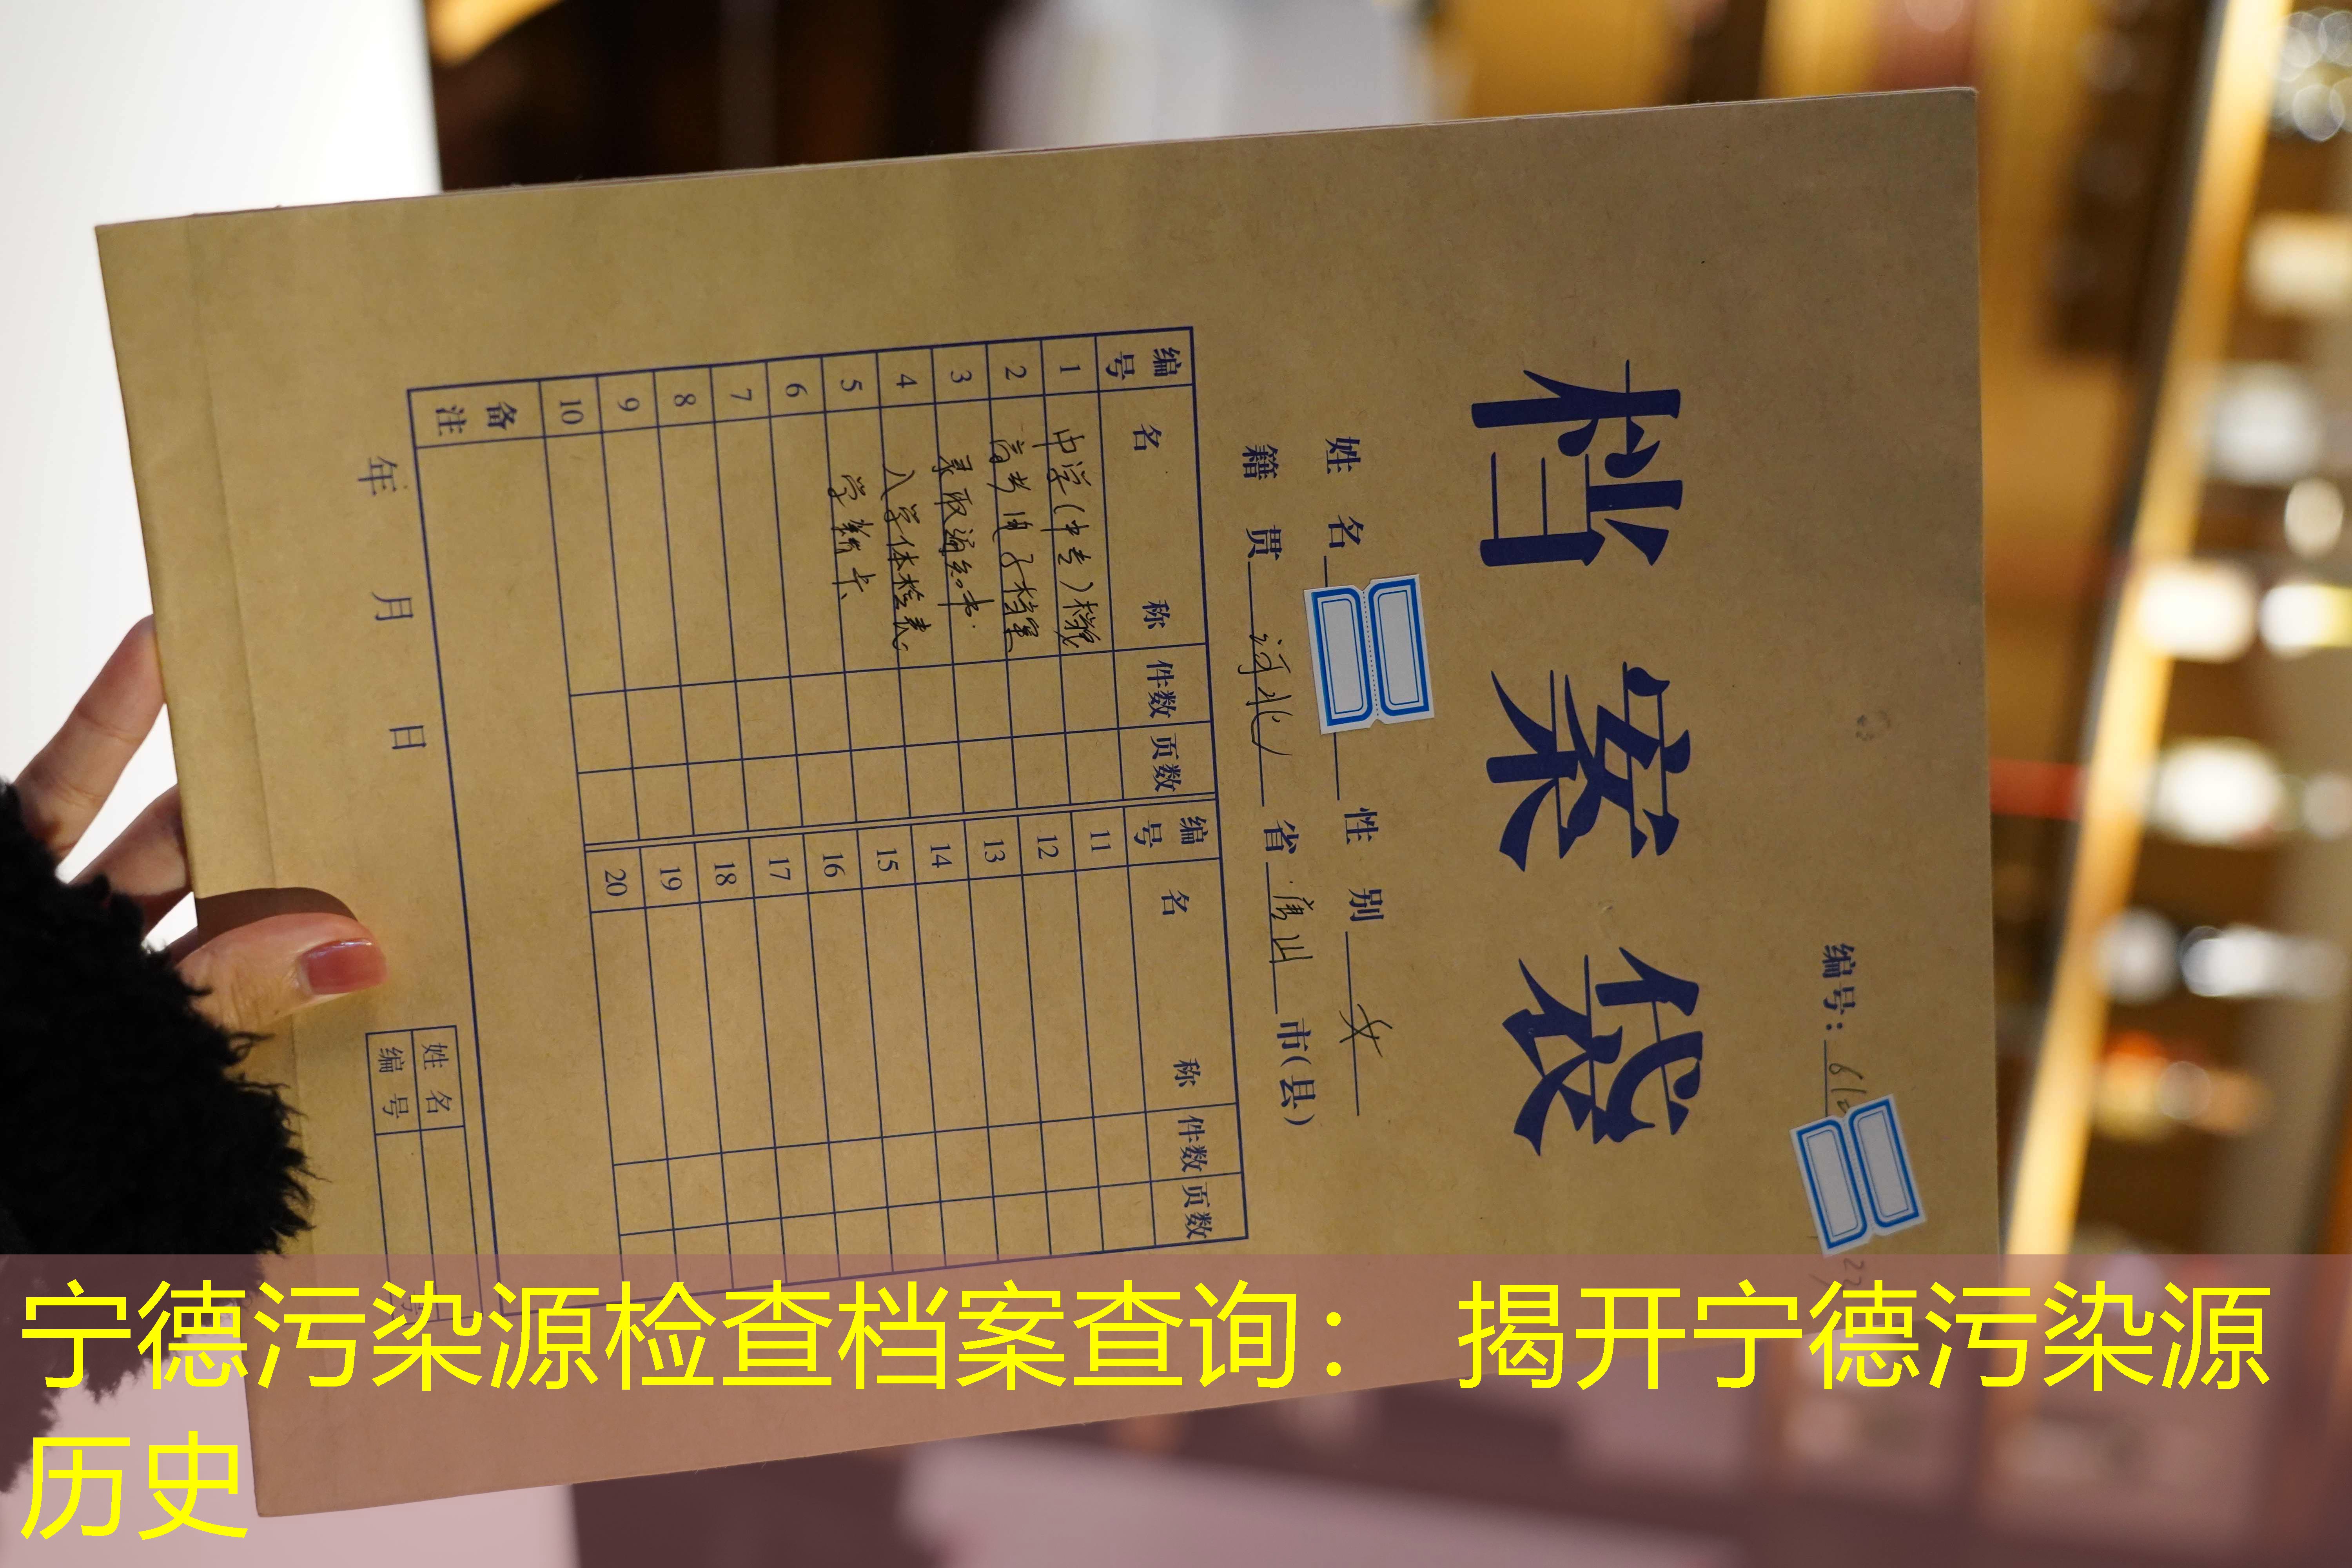 编号：
档案袋
姓 名 性 别 女
籍 贯 河北 省 唐山 市(县)
编号 名称 件数 页数 编号 名称 件数 页数
1 中学(中专)档案 11
2 高考电子档案 12
3 录取通知书. 13
4 入学体检表 14
5 学籍卡 15
6 16
7 17
8 18
9 19
10 20
备注
年 月 日
姓 名
编 号
宁德污染源检查档案查询： 揭开宁德污染源
历史